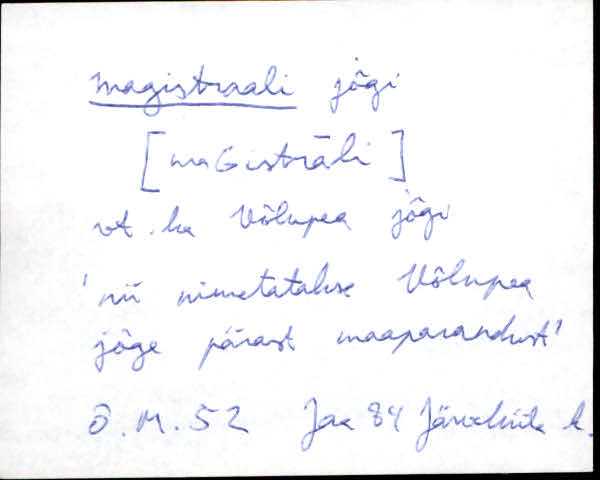 magistraali jõgi
[maGistrāli]
vt. ka Võlupea jõgi
'nii nimetatakse Võlupea
jõge pärast maaparandust'
Õ.M. 52 Jaa 84 k.